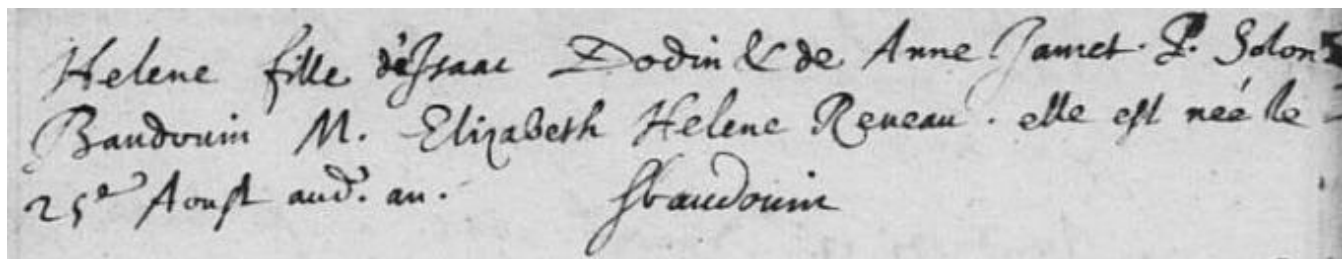 Helene fille d'Isaac Dodin & de Anne Jamet. P. Solon
Baudouin M. Elizabeth Helene Reneau. elle est neé le
25e Aoust aud. an. SBaudouin